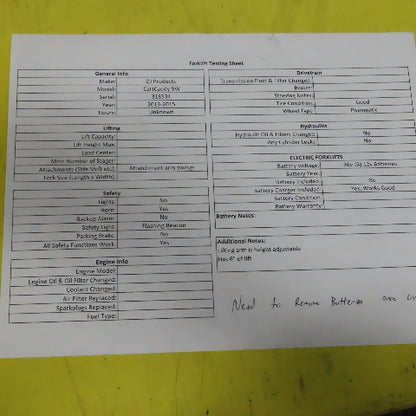 Forklift Testing Sheet
General Info
Make: DJ Products
Model: CartCaddy 5W
Serial:
Year: 2013-2015
Hours: Unknown
Lifting
Lift Capacity:
Lift Height Max:
Load Center:
Mast Number of Stages:
Attachments (Side Shift etc): Attachment arm swings
Fork Size (Length x Width):
Safety
Lights: No
Horn: Yes
Backup Alarm: No
Safety Light: Flashing Beacon
Parking Brake: No
All Safety Functions Work: Yes
Engine Info
Engine Model:
Engine Oil & Oil Filter Changed:
Coolant Changed:
Air Filter Replaced:
Sparkplugs Replaced:
Fuel Type:
Drivetrain
Transmission Fluid & Filter Changed:
Brakes:
Steering Notes:
Tire Condition: Good
Wheel Type: Pneumatic
Hydraulics
Hydraulic Oil & Filters Changed: No
Any Cylinder Leaks: No
ELECTRIC FORKLIFTS
Battery Voltage: 36v (3) 12v Batteries
Battery Year:
Battery Included: No
Battery Charger Included: Yes, Works Good
Battery Condition:
Battery Warranty:
Battery Notes:
Additional Notes:
Lifting arm is height adjustable
Has 6" of lift
Need to Remove Batteries